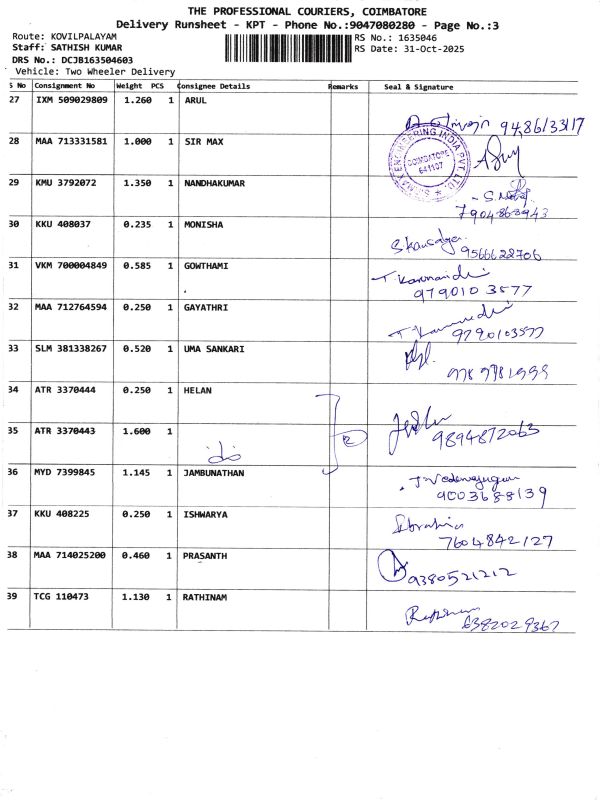 THE PROFESSIONAL COURIERS, COIMBATORE
Delivery Runsheet - KPT - Phone No.:9047080280 - Page No.:3
Route: KOVILPALAYAM RS No.: 1635046
Staff: SATHISH KUMAR RS Date: 31-Oct-2025
DRS No.: DCJB163504603
Vehicle: Two Wheeler Delivery
S No Consignment No Weight PCS Consignee Details Remarks Seal & Signature
27 IXM 509029809 1.260 1 ARUL
9486133117
28 MAA 713331581 1.000 1 SIR MAX
ENGINEERING INDIA PVT LTD.
COIMBATORE
641107
29 KMU 3792072 1.350 1 NANDHAKUMAR
7904868943
30 KKU 408037 0.235 1 MONISHA
9566622706
31 VKM 700004849 0.585 1 GOWTHAMI
9790103577
32 MAA 712764594 0.250 1 GAYATHRI
9790103577
33 SLM 381338267 0.520 1 UMA SANKARI
34 ATR 3370444 0.250 1 HELAN
35 ATR 3370443 1.600 1
9894872063
36 MYD 7399845 1.145 1 JAMBUNATHAN
9003688139
37 KKU 408225 0.250 1 ISHWARYA
Ibrahim
7604842127
38 MAA 714025200 0.460 1 PRASANTH
9380521212
39 TCG 110473 1.130 1 RATHINAM
6382029367